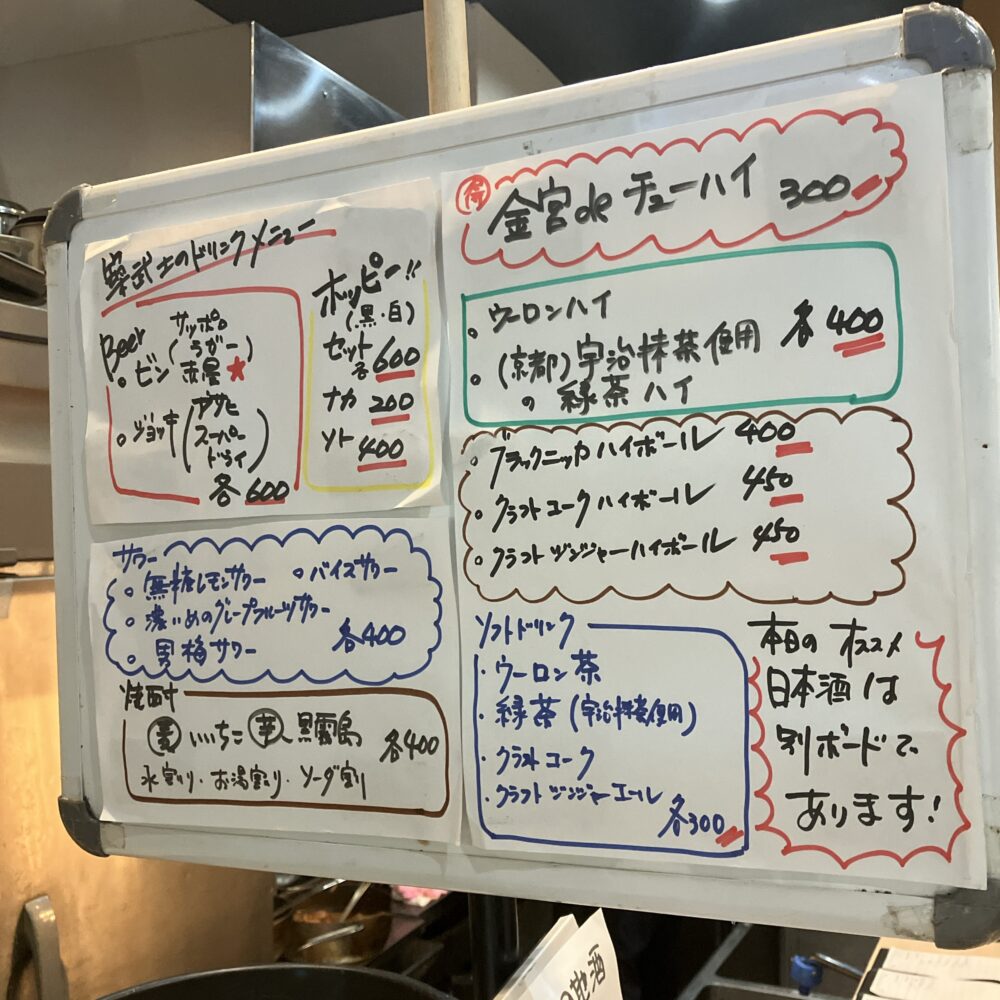 築武士のドリンクメニュー
Beer
サッポロ
(ラガー)
○ビン 赤星★
○ジョッキ(アサヒ
スーパー
ドライ)
各600
ホッピー!!
(黒・白)
セット
各600
ナカ 200
ソト 400
サワー
○無糖レモンサワー ○バイスサワー
○濃いめのグレープフルーツサワー
○男梅サワー 各400
焼酎
麦 いいちこ 芋 黒霧島 各400
水割り・お湯割り・ソーダ割り
得 金宮deチューハイ 300
○ウーロンハイ
○(京都)宇治抹茶使用
の緑茶ハイ
各400
○ブラックニッカハイボール 400
○クラフトコークハイボール 450
○クラフトジンジャーハイボール 450
ソフトドリンク
・ウーロン茶
・緑茶(宇治抹茶使用)
・クラフトコーク
・クラフトジンジャーエール
各300
本日のオススメ
日本酒は
別ボードで
あります!
地酒